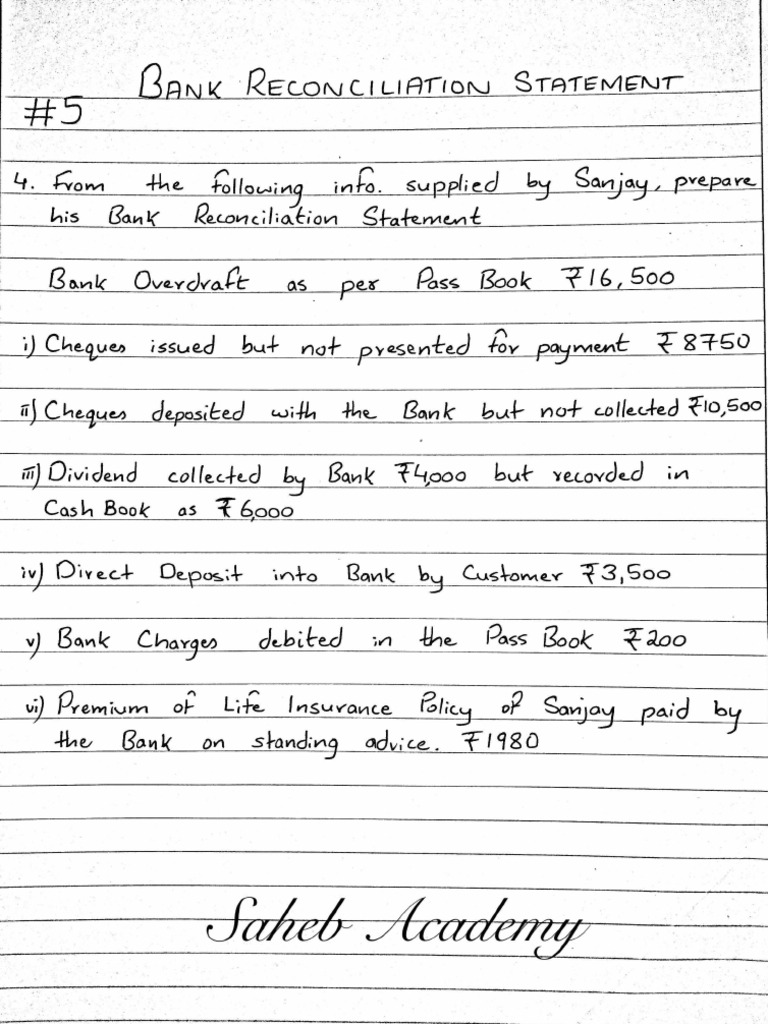 BANK RECONCILIATION STATEMENT
#5
4. From the following info. supplied by Sanjay, prepare
his Bank Reconciliation Statement
Bank Overdraft as per Pass Book ₹16,500
i) Cheques issued but not presented for payment ₹8750
ii) Cheques deposited with the Bank but not collected ₹10,500
iii) Dividend collected by Bank ₹4,000 but recorded in
Cash Book as ₹6,000
iv) Direct Deposit into Bank by Customer ₹3,500
v) Bank Charges debited in the Pass Book ₹200
vi) Premium of Life Insurance Policy of Sanjay paid by
the Bank on standing advice. ₹1980
Saheb Academy